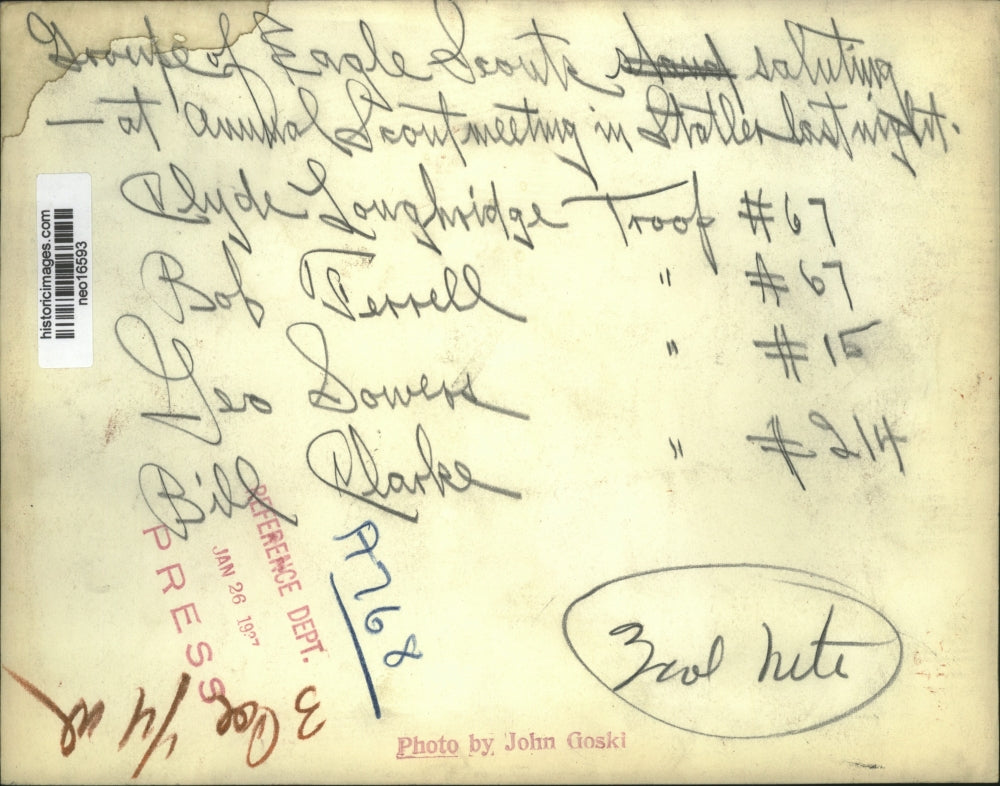 Groupe of Eagle Scouts saluting
— at Annual Scout meeting in Statler last night.
Clyde Loughridge Troop #67
Bob Terrell " #67
Geo Sowers " #15
Bill Clarke " #214
historicimages.com
neo16593
REFERENCE DEPT.
JAN 26 19
PRESS
A768
3 col nite
3 Col 1/4
Photo by John Goski